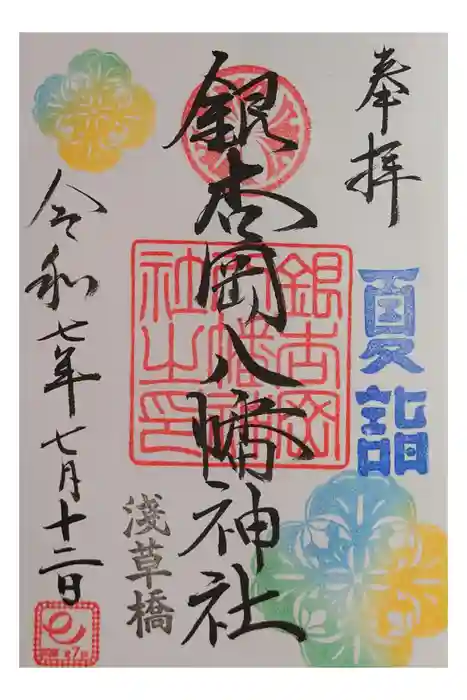 奉拝
夏詣
銀杏岡八幡神社
銀杏岡
八幡神
社之印
淺草橋
令和七年七月十二日